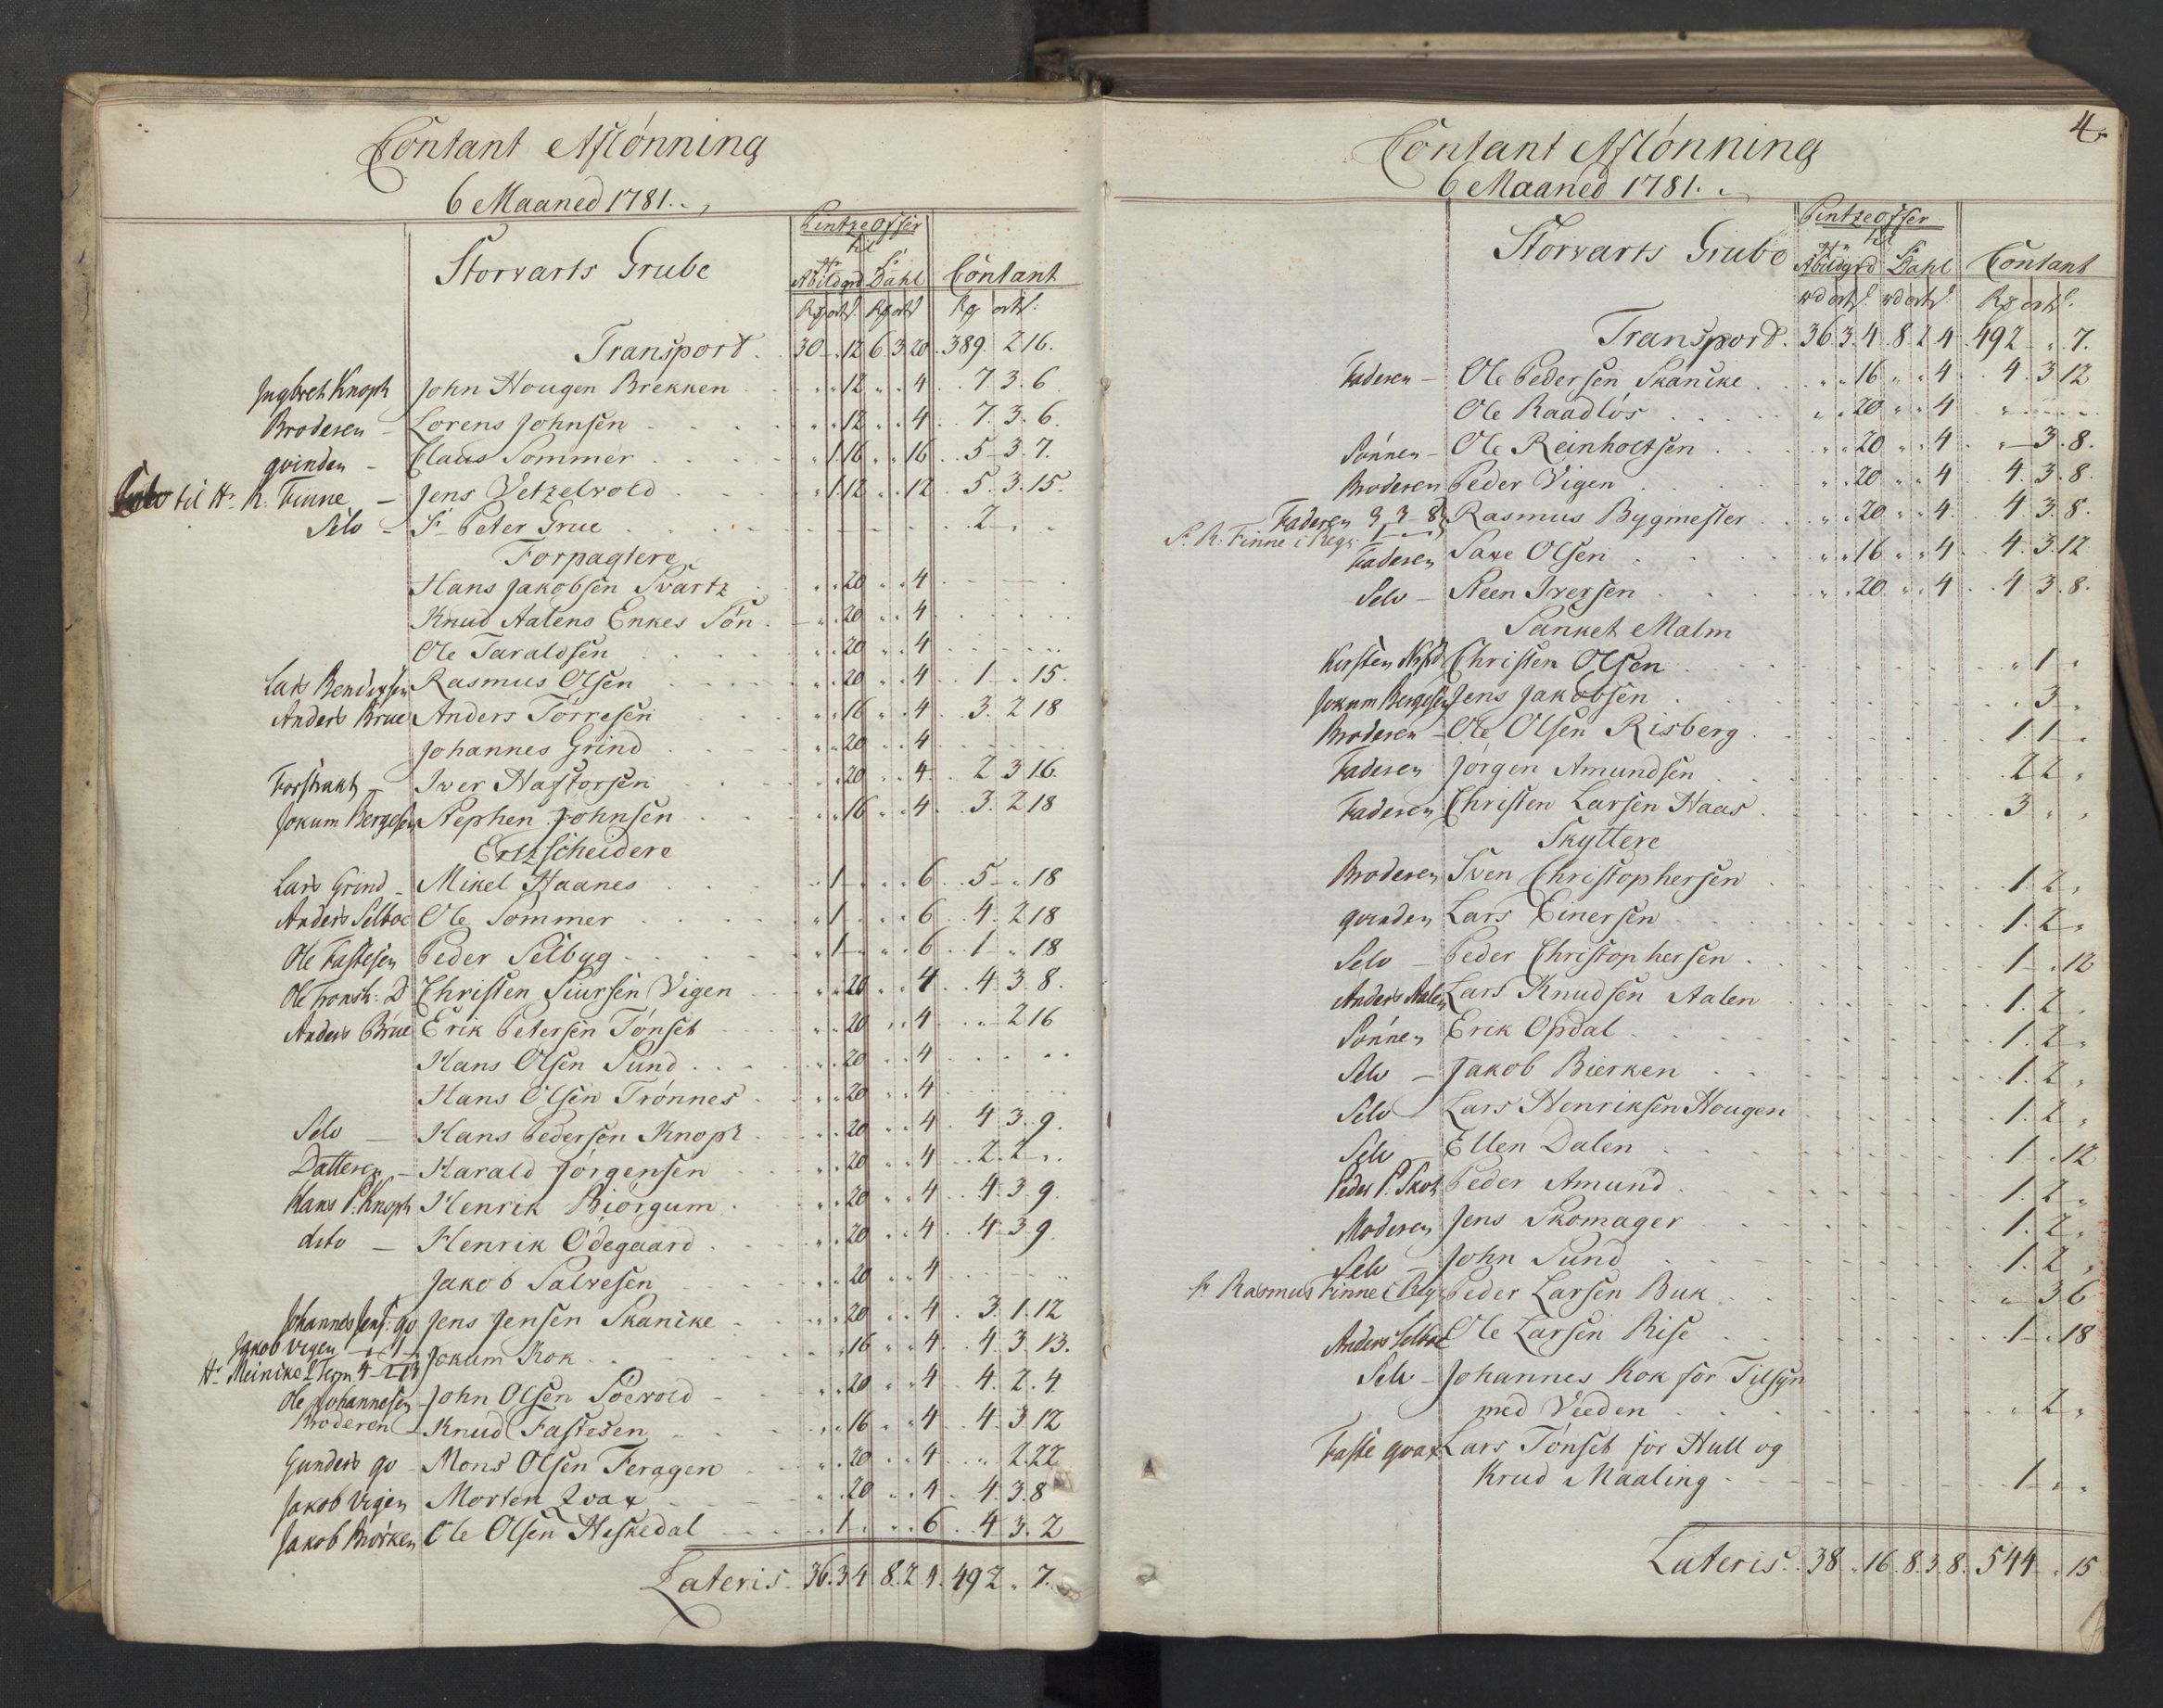 Contant Aflönning
6 Maaned 1781.
Pintzeoffer
til
Storvarts Grube
Hr Abildgrd Sr Dahl Contant
Transport. 30 " 12 6 3 20 389. 2 16.
Ingbret Knoph John Hougen Brekken " " 12 " " 4 7 3 6
Broderen – Lorens Johnsen " " 12 " " 4 7. 3. 6.
qvinden – Claus Sommer " 1. 16 " " 16 5 3 7.
til Hr R. Finne – Jens Vetzelvold " 1. 12 " " 12 5. 3. 15.
Selv – Sr Peter Grue 2 " "
Forpagtere
Hans Jakobsen Svartz " " 20 " " 4
Knud Aalens Enkes Sön " " 20 " " 4
Ole Taraldsen " " 20 " " 4
Lars Bendixsen Rasmus Olsen " " 20 " " 4 1 " 15.
Anders Brue Anders Torresen " " 16 " " 4 3. 2 18
Johannes Grind " " 20 " " 4
Forstrakt – Iver Hafstorsen " " 20 " " 4 2 3 16.
Jokum Bergesen Stephen Johnsen " " 16 " " 4 3. 2 18
Ertzscheidere
Lars Grind – Mikel Haanes " 1 – " " 6 5 " 18
Anders Selboe Ole Sommer " 1 – " " 6 4. 2 18
Ole Fastesen Peder Selbyg " 1 – " " 6 1 " 18
Ole Tronsh: D Christen Siursen Vigen " " 20 " " 4 4 3 8.
Anders Brue Erik Petersen Tönset " " 20 " " 4 " 2 16
Hans Olsen Sund " " 20 " " 4
Hans Olsen Trönnes " " 20 " " 4
Selv – Hans Pedersen Knoph " " 20 " " 4 4 3. 9.
Datteren – Harald Jörgensen " " 20 " " 4 2. 2 "
Hans P. Knoph Henrik Biörgum " " 20 " " 4 4. 3 9.
dito – Henrik Ödegaard " " 20 " " 4 4 3 9.
Jakob Salvesen " " 20 " " 4
Johannes Jens: go Jens Jensen Skanike " " 20 " " 4 3. 1. 12
Jakob Vigen – " 1 –
Jokum Kok " " 16 " " 4 4. 3 13.
Hr Meinike 2 Term. 4 – 2 13
Ole Johannesen John Olsen Soevold " " 20 " " 4 4. 2. 4
Broderen – Knud Fastesen " " 16 " " 4 4. 3 12
Gunders go – Mons Olsen Feragen " " 20 " " 4 " 2. 22
Jakob Vigen Morten Qvax " " 20 " " 4 4. 3. 8
Jakob Biörken Ole Olsen Heskedal " 1. " " " 6 4 3. 2
Lateris. 36. 3 4. 8. 2 4. 492 " 7.
4.
Contant Aflönning
6 Maaned 1781.
Pintzeoffer
til
Storvarts Grube
Hr Abildgrd Sr Dahl Contant
Transport. 36. 3. 4. 8 2 4 492 " 7.
Faderen – Ole Pedersen Skanike " " 16 " " 4 4. 3 12
Ole Raadlös " " 20 " " 4 "
Sönnen – Ole Reinholtsen " " 20 " " 4 " 3. 8.
Broderen Peder Vigen " " 20 " " 4 4. 3. 8.
Faderen 3 3 – 8 Rasmus Bygmester " " 20 " " 4. 4 3. 8.
Sr R. Finne i Regn. 1
Faderen Saxe Olsen " " 16 " " 4 4. 3. 12
Selv – Steen Iversen " " 20 " " 4 4 3. 8.
Sanket Malm
Christen Olsen " 1 "
Jokum Bergesen Jens Jakobsen " 3 "
Broderen – Ole Olsen Risberg 1 1 "
Faderen Jörgen Amundsen 2 2 "
Faderen Christen Larsen Haas 3 " "
Skyttere
Broderen Sven Christophersen 1. 2 "
qvinden Lars Einersen 1. 2 "
Selv – Peder Christophersen 1 " 12
Anders Aalen Lars Knudsen Aalen 1. 2 "
Sönnen Erik Opdal 1. 2 "
Selv – Jakob Bierken 1. 2 "
Selv Lars Henriksen Hougen 1. 2 "
Selv – Ellen Dalen 1 " 12
Peder P. Skot Peder Amund 1. 2 "
Moderen Jens Skomager 1. 2 "
Selv – John Sund 1. 2 "
Sr Rasmus Finne i Regn Peder Larsen Buk " 3 6
Anders Selboe Ole Larsen Rise 1 " 18
Selv – Johannes Kok for Tilsyn
med Veeden " 2 "
Faste qvax Lars Tönset for Hull og
Krud Maaling 1 " "
Lateris. 38 " 16. 8. 3. 8. 544 " 15